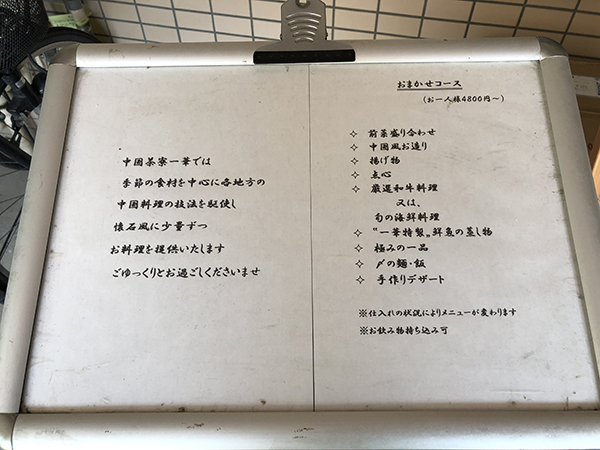 中国茶寮一華では
季節の食材を中心に各地方の
中国料理の技法を駆使し
懐石風に少量ずつ
お料理を提供いたします
ごゆっくりとお過ごしくださいませ
おまかせコース
(お一人様4800円~)
✧ 前菜盛り合わせ
✧ 中国風お造り
✧ 揚げ物
✧ 点心
✧ 厳選和牛料理
又は、
旬の海鮮料理
✧ "一華特製„鮮魚の蒸し物
✧ 極みの一品
✧ 〆の麺・飯
✧ 手作りデザート
※仕入れの状況によりメニューが変わります
※お飲み物持ち込み可